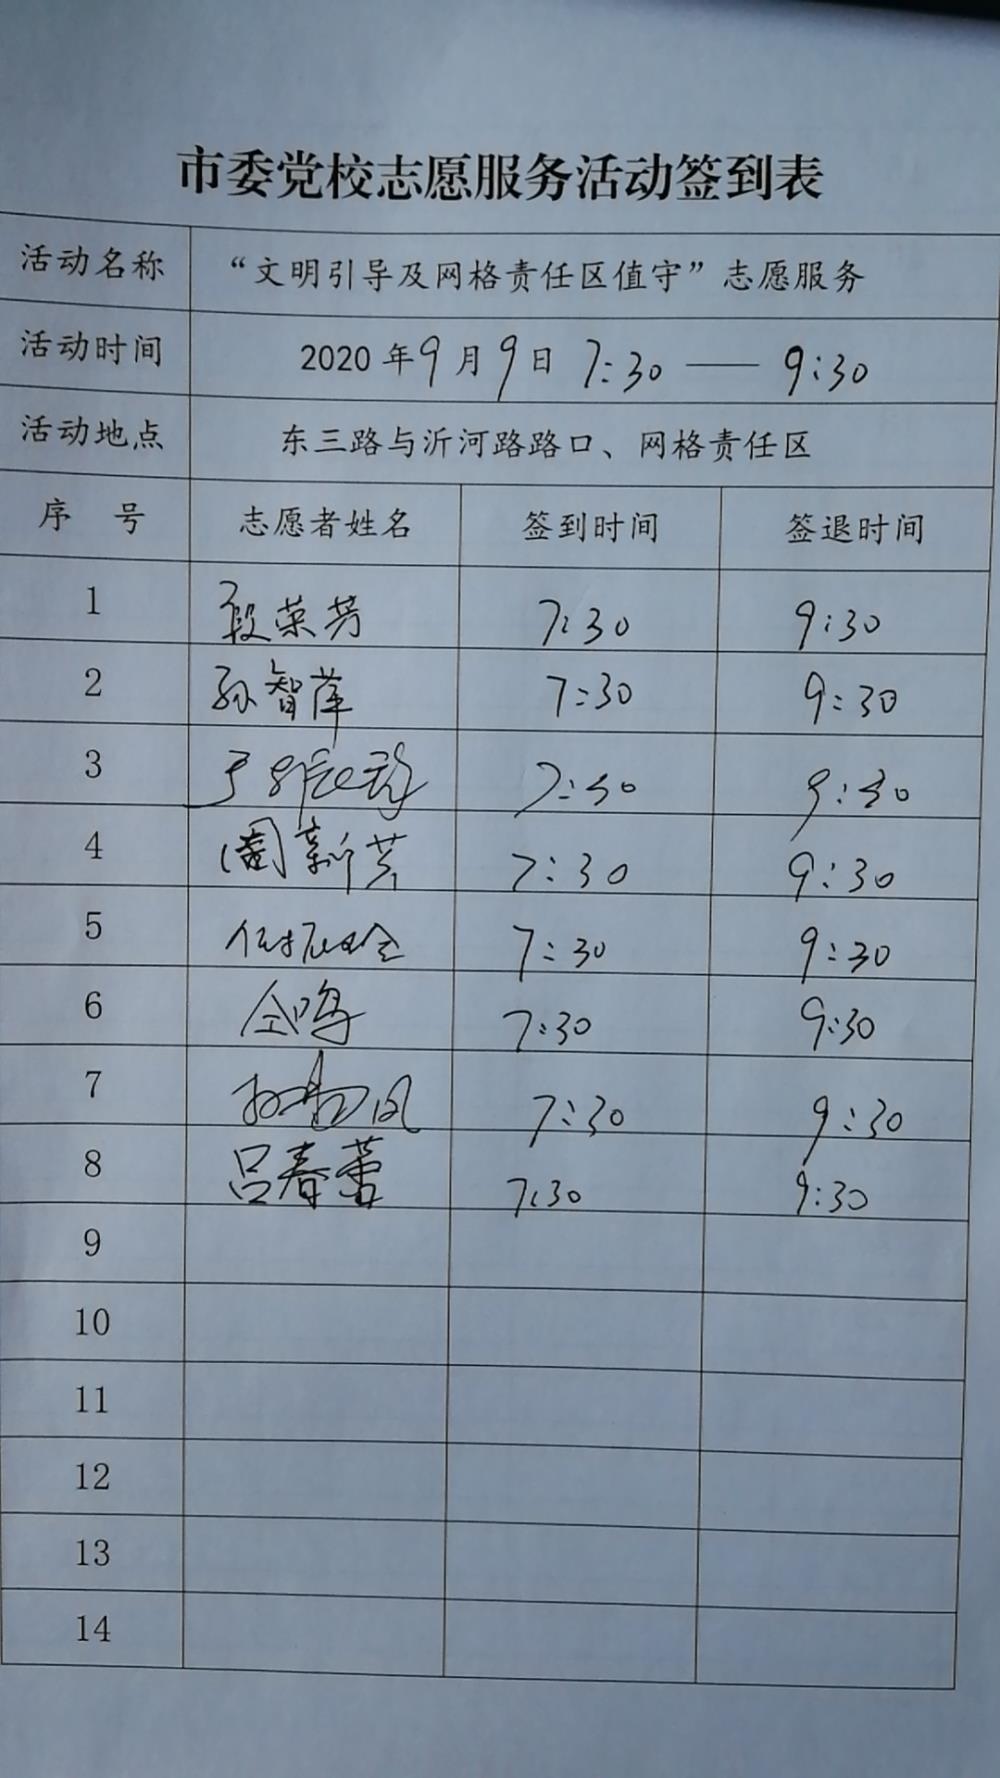 市委党校志愿服务活动签到表
活动名称 “文明引导及网格责任区值守”志愿服务
活动时间 2020年9月9日 7:30 —— 9:30
活动地点 东三路与沂河路路口、网格责任区
序 号 志愿者姓名 签到时间 签退时间
1 段荣芳 7:30 9:30
2 孙智萍 7:30 9:30
3 7:30 9:30
4 周新芸 7:30 9:30
5 7:30 9:30
6 仝鸣 7:30 9:30
7 7:30 9:30
8 吕春蕾 7:30 9:30
9
10
11
12
13
14